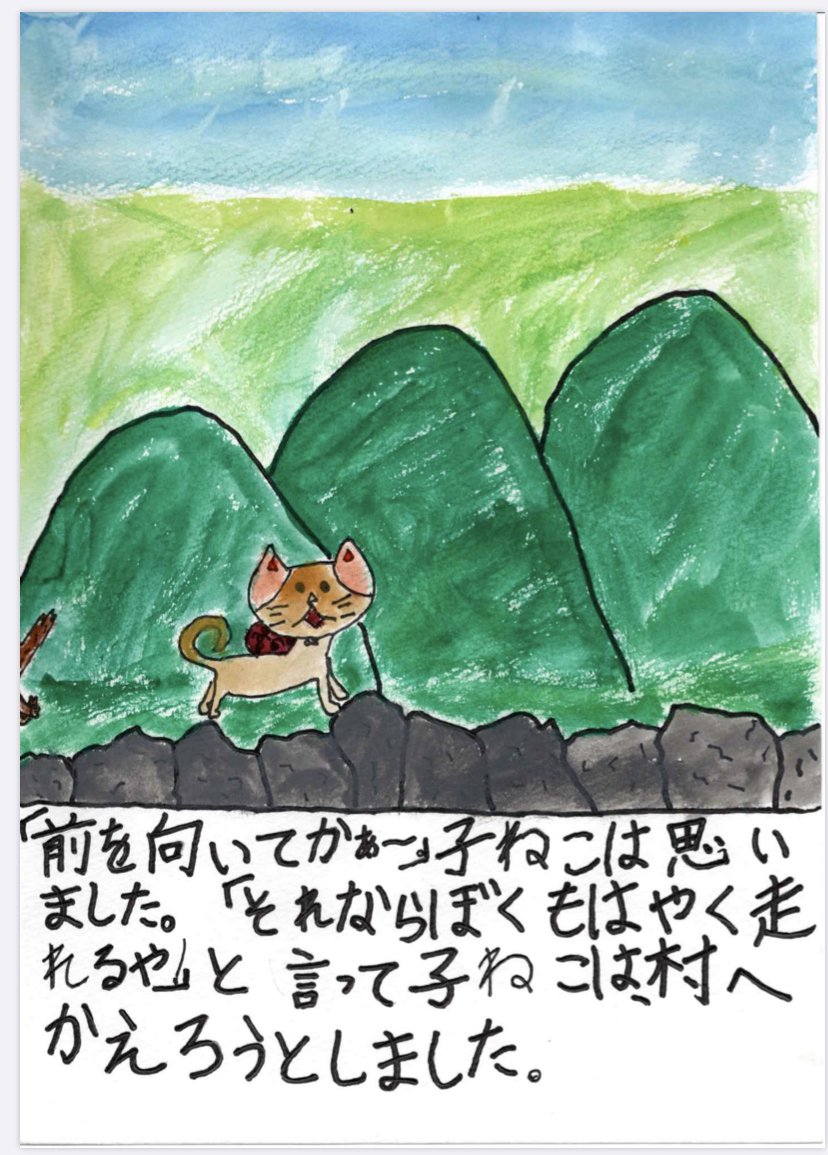 「前を向いてかぁ〜」子ねこは思い
ました。「それならぼくもはやく走
れるや」と言って子ねこは、村へ
かえろうとしました。